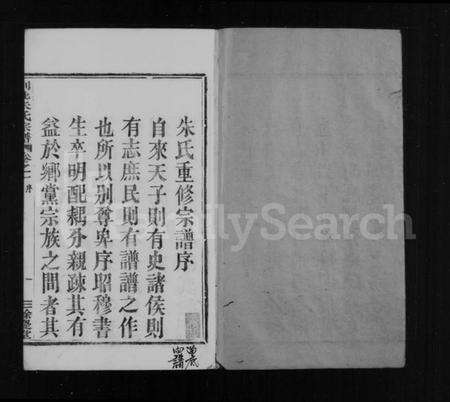 朱氏重修宗譜序
自來天子則有史諸侯則
有志庶民則有譜譜之作
也所以别尊卑序昭穆書
生卒明配耦分親疎其有
益於鄉黨宗族之間者其
卷之一 序
一
FamilySearch